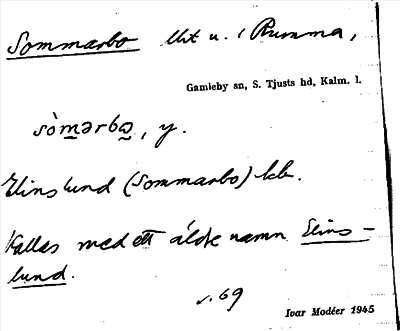 Sommarbo utt u. i Rumma,
Gamleby sn, S. Tjusts hd, Kalm. l.
sòmərbo, y.
Elinslund (Sommarbo) kb.
Kallas med ett äldre namn Elins-
lund.
s. 69
Ivar Modéer 1945